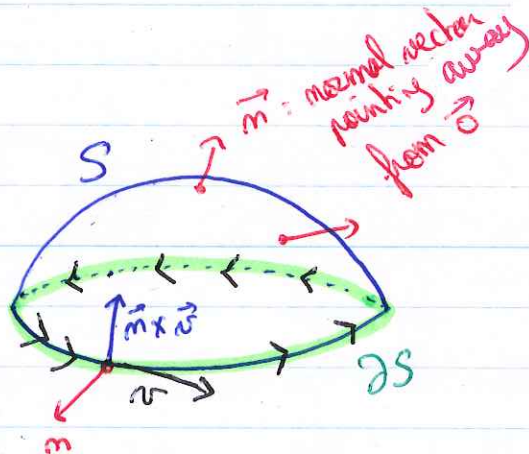 n⃗ : normal vector
pointing away
from 0⃗
S
n⃗ × v⃗
v
n
∂S